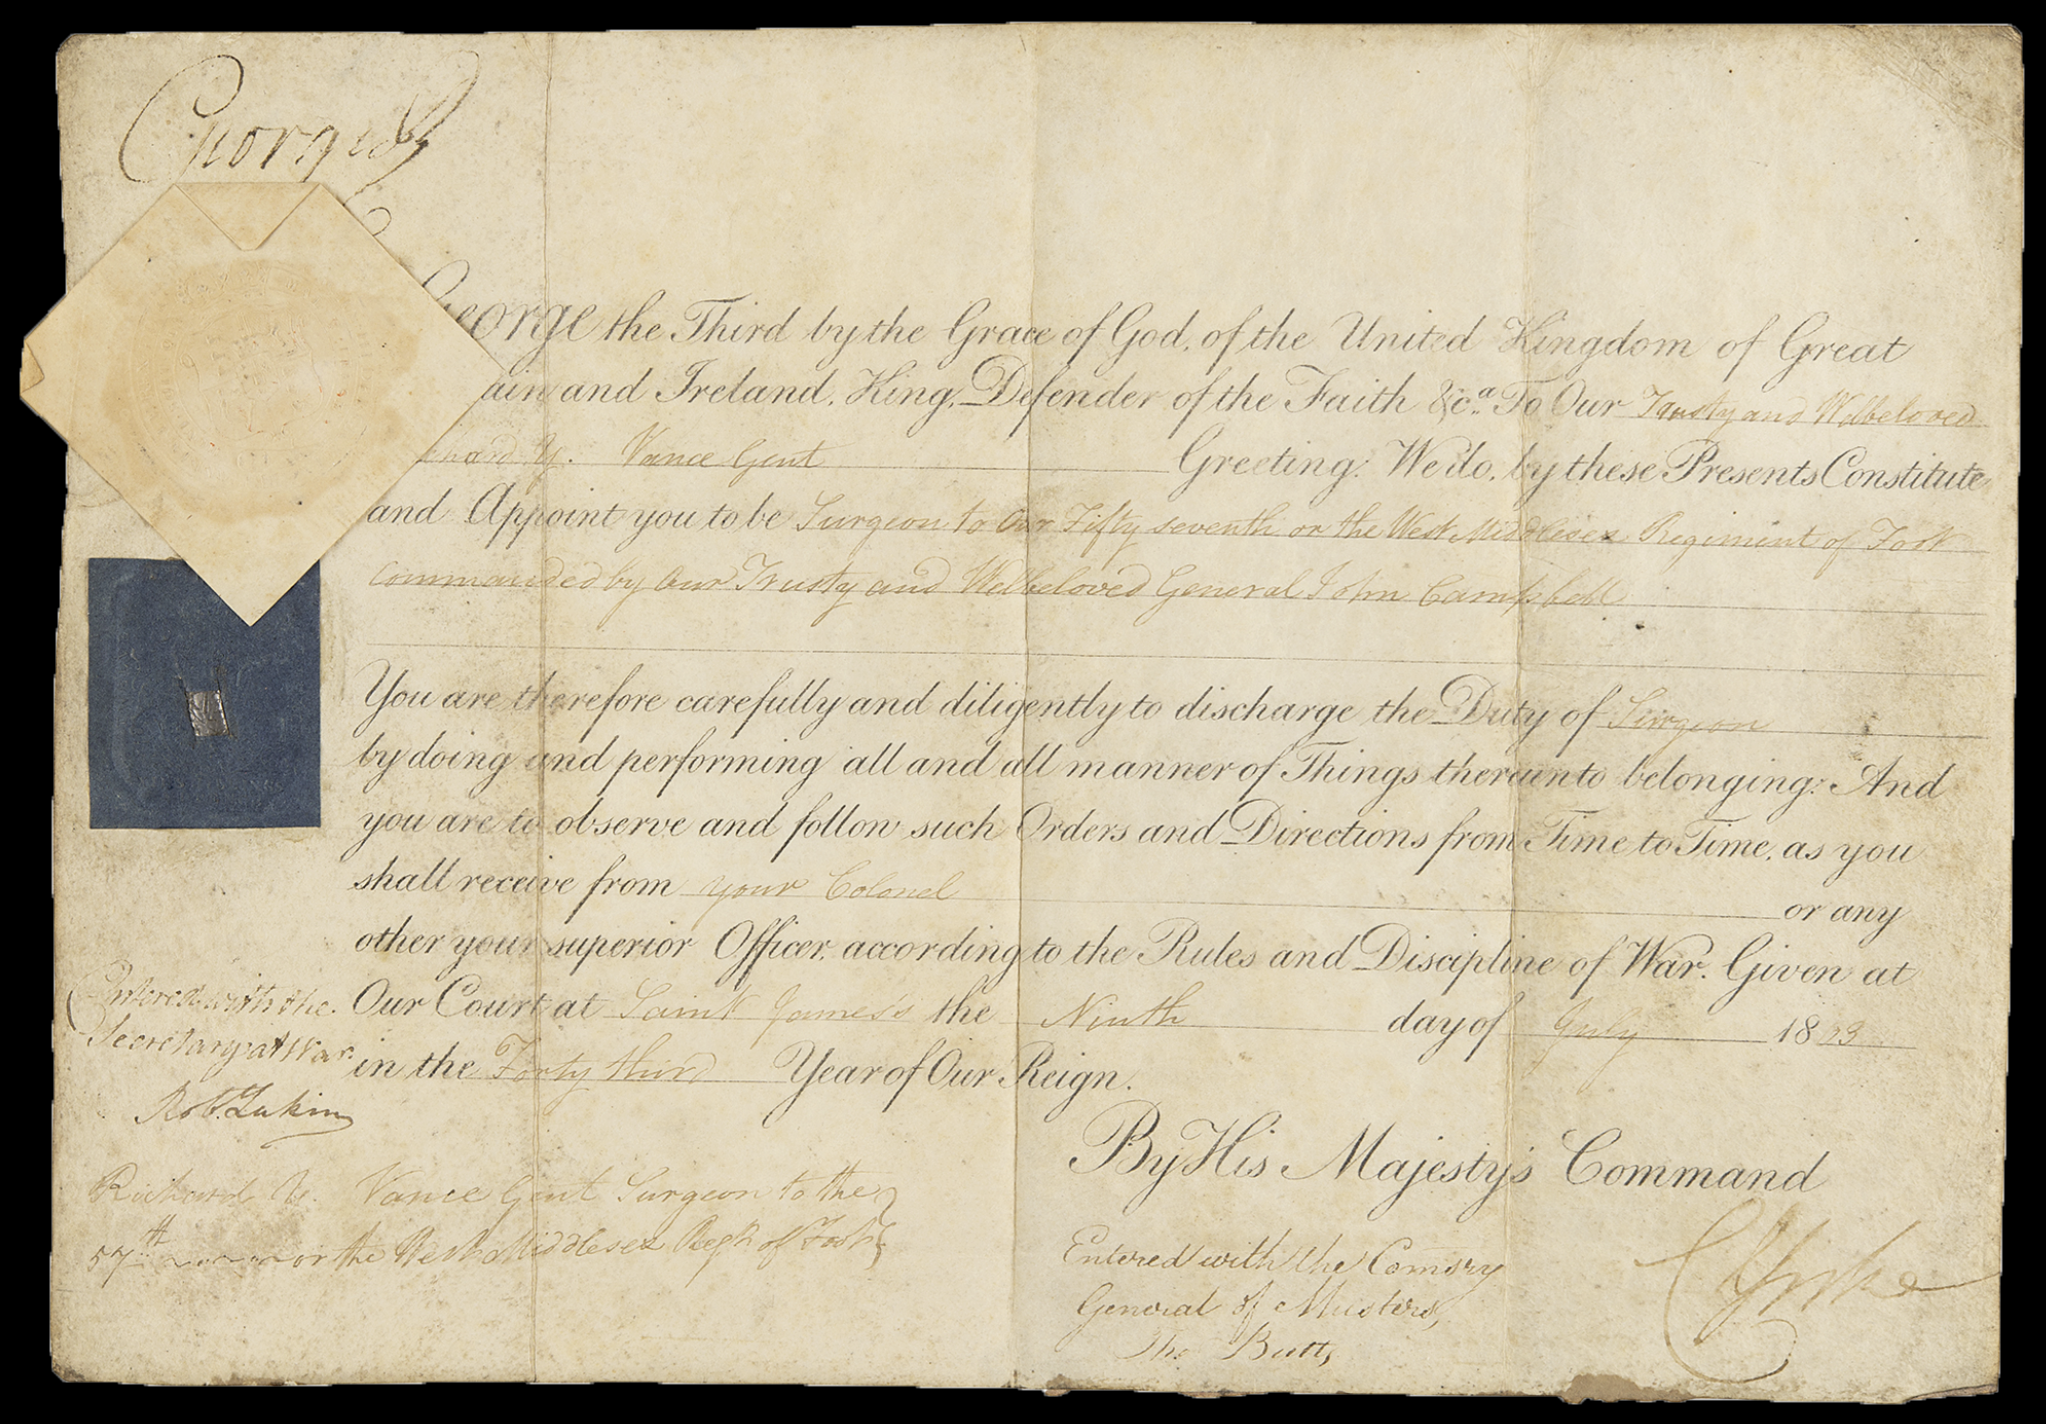 George R
George the Third by the Grace of God, of the United Kingdom of Great
ain and Ireland, King, Defender of the Faith &c.a To Our Trusty and Welbeloved
chard Y. Vance Gent Greeting: We do, by these Presents Constitute
and Appoint you to be Surgeon to Our Fifty seventh or the West Middlesex Regiment of Foot
commanded by Our Trusty and Welbeloved General John Campbell
You are therefore carefully and diligently to discharge the Duty of Surgeon
by doing and performing all and all manner of Things thereunto belonging: And
you are to observe and follow such Orders and Directions from Time to Time, as you
shall receive from your Colonel or any
other your superior Officer, according to the Rules and Discipline of War. Given at
Our Court at Saint James's the Ninth day of July 1803
in the Forty third Year of Our Reign.
By His Majesty's Command
C Yorke
Entered with the
Secretary at War
Rob. Lukin
Richard Y. Vance Gent Surgeon to the
57th or the West Middlesex Regt. of Foot
Entered with the Comsry
General of Musters,
Tho Butts